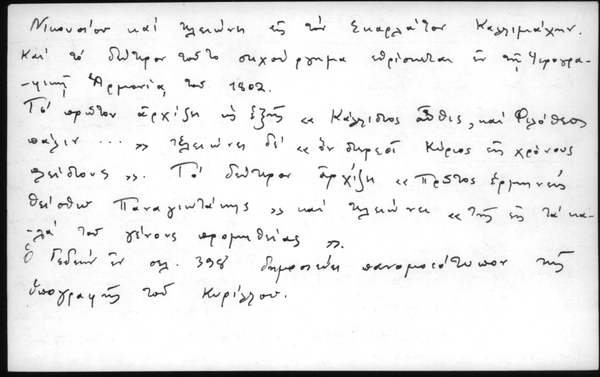 Νικουσίου καί τελειώνει εἰς τόν Σκαρλάτον Καλλιμάχην.
Καί τό δεύτερον τοῦτο στιχούργημα εὑρίσκεται ἐν τῇ Ἱερογρα-
-φικῇ Ἁρμονίᾳ τοῦ 1802.
Τό πρῶτον ἀρχίζει ὡς ἑξῆς « Κάλλιστος αὖθις, καί Φιλόθεος
πάλιν ... » τελειώνει δέ « ὅν τηρεῖ Κύριος εἰς χρόνους
πλείστους ». Τό δεύτερον ἀρχίζει « Πρῶτος ἑρμηνεύς
θείσθω Παναγιωτάκης » καί τελειώνει « τῆς εἰς τά κα-
-λά τοῦ γένους προμηθείας ».
Ὁ Γεδεών ἐν σελ. 398 δημοσιεύει πανομοιότυπον τῆς
ὑπογραφῆς τοῦ Κυρίλλου.